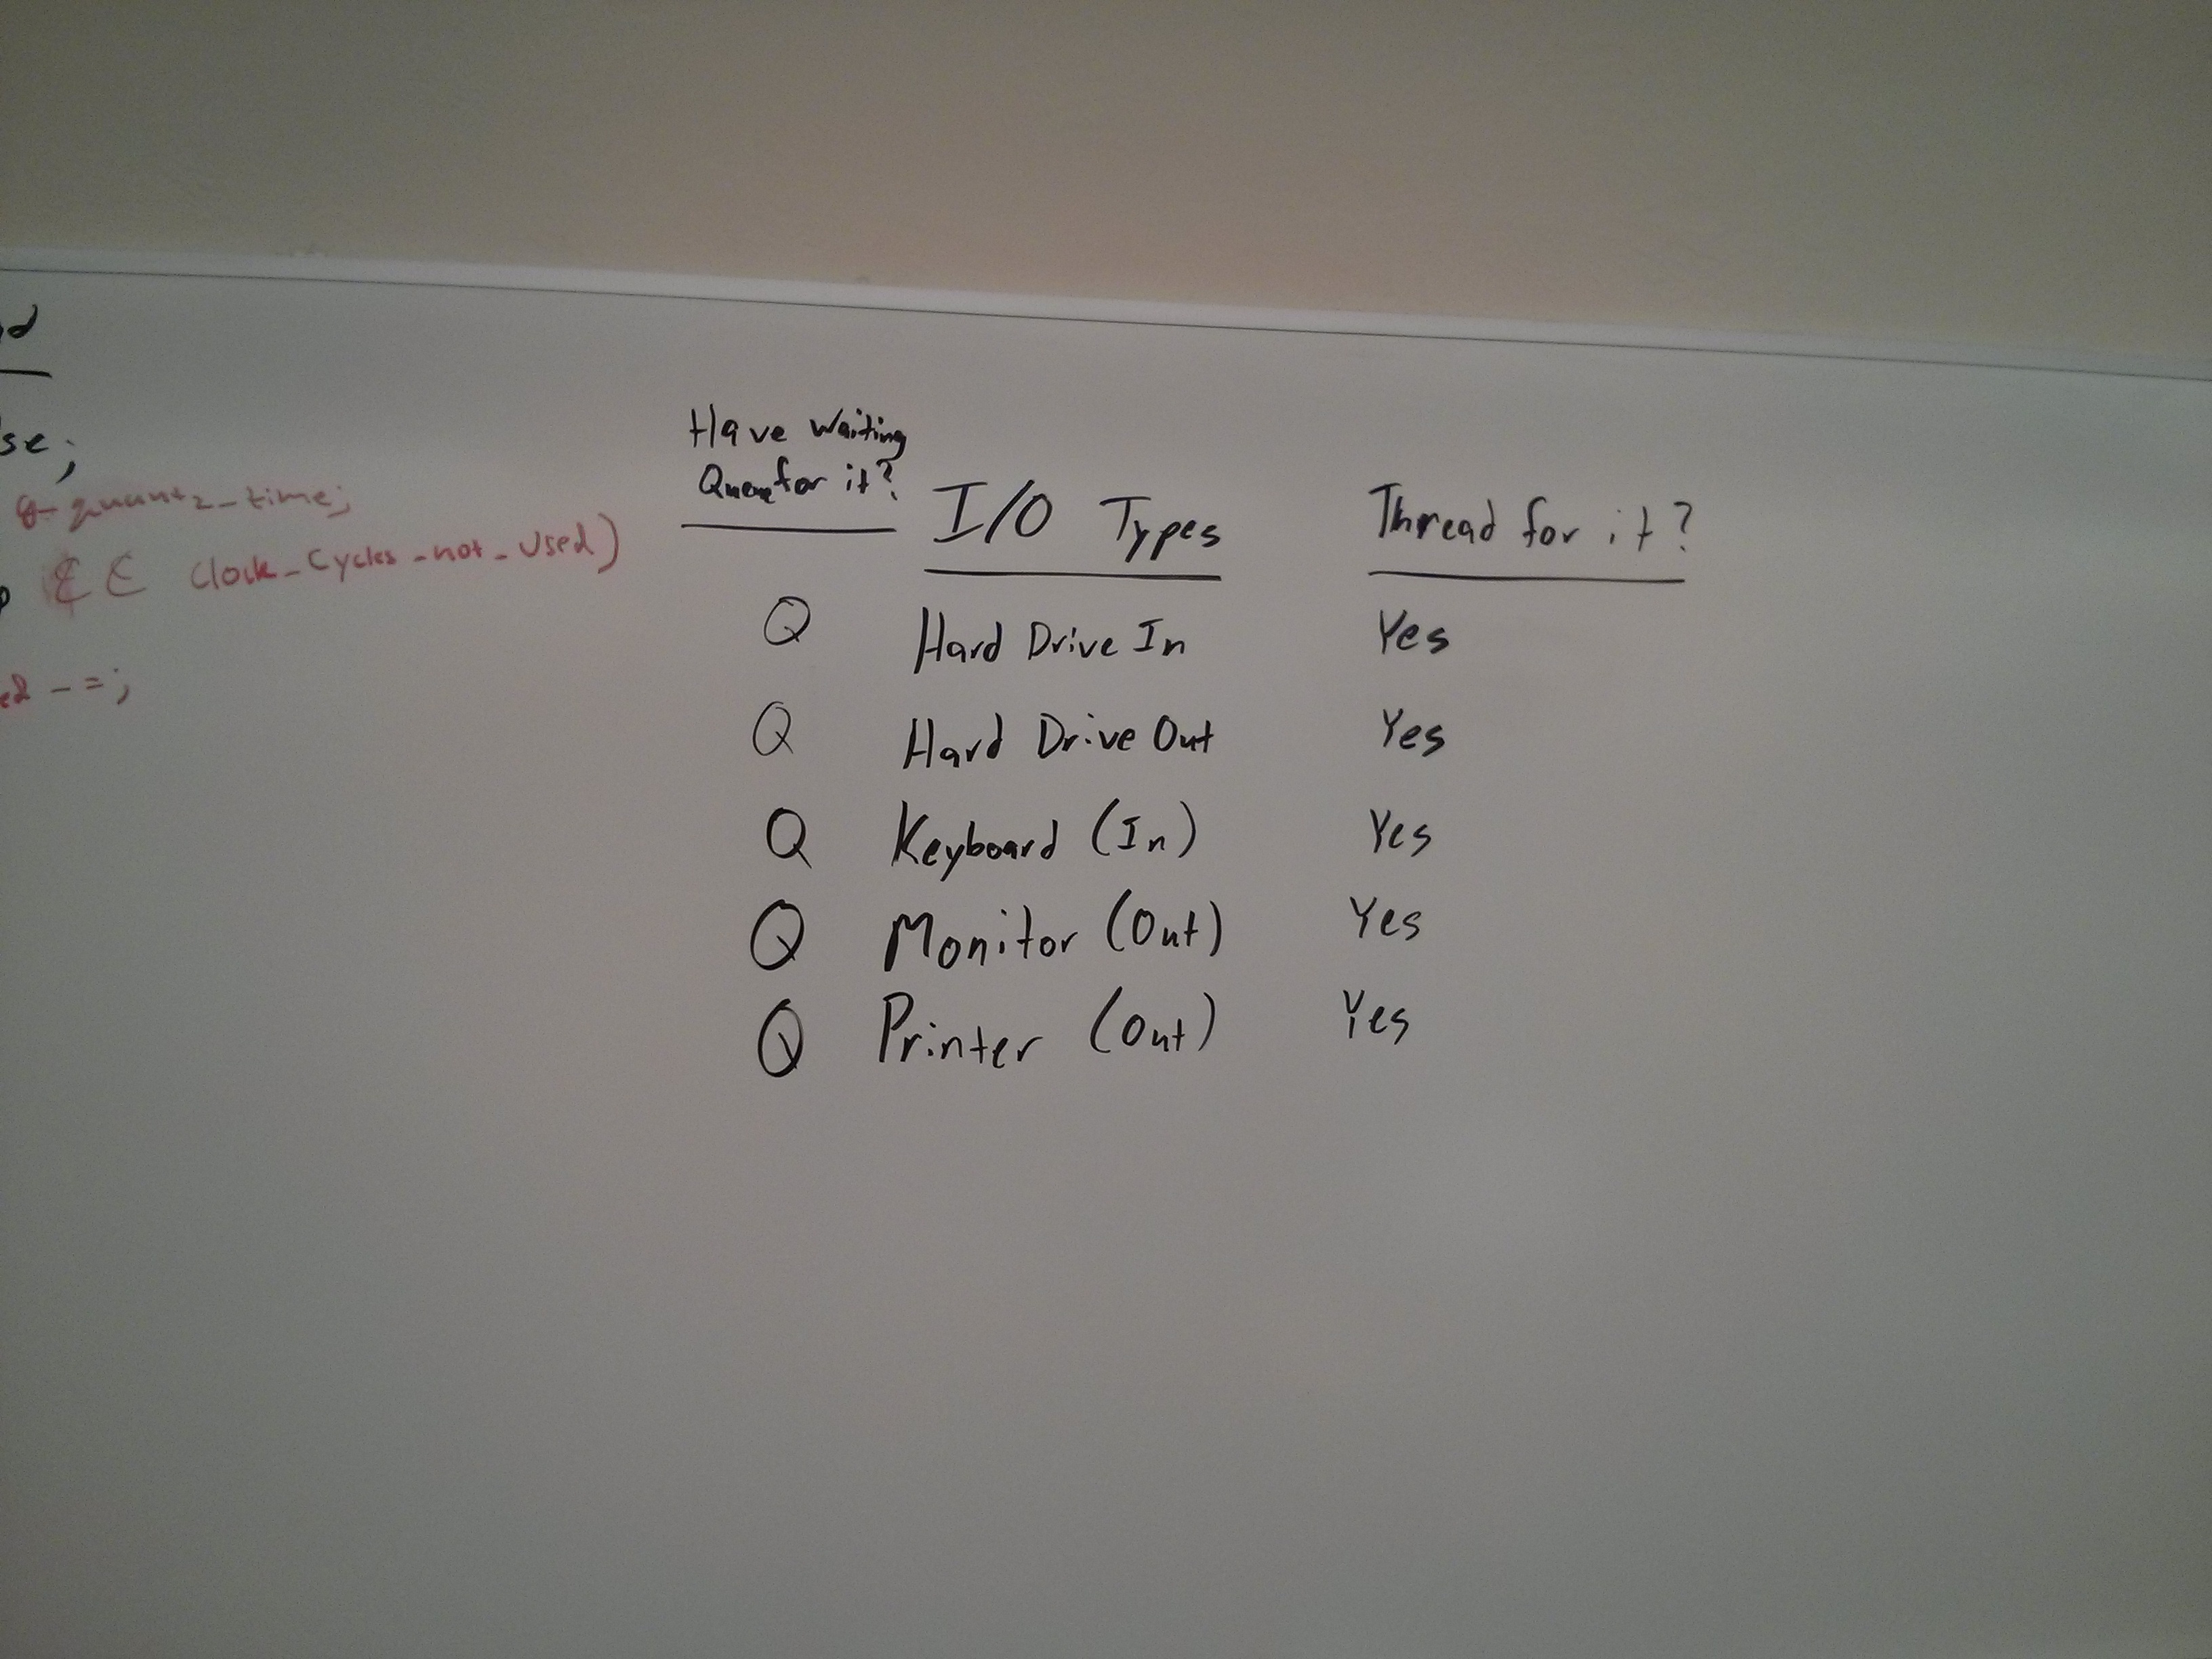 se;
time;
Clock_Cycles_not_Used)
-=;
Have Waiting
Queue for it?
I/O Types
Thread for it?
Q Hard Drive In Yes
Q Hard Drive Out Yes
Q Keyboard (In) Yes
Q Monitor (Out) Yes
Q Printer (Out) Yes